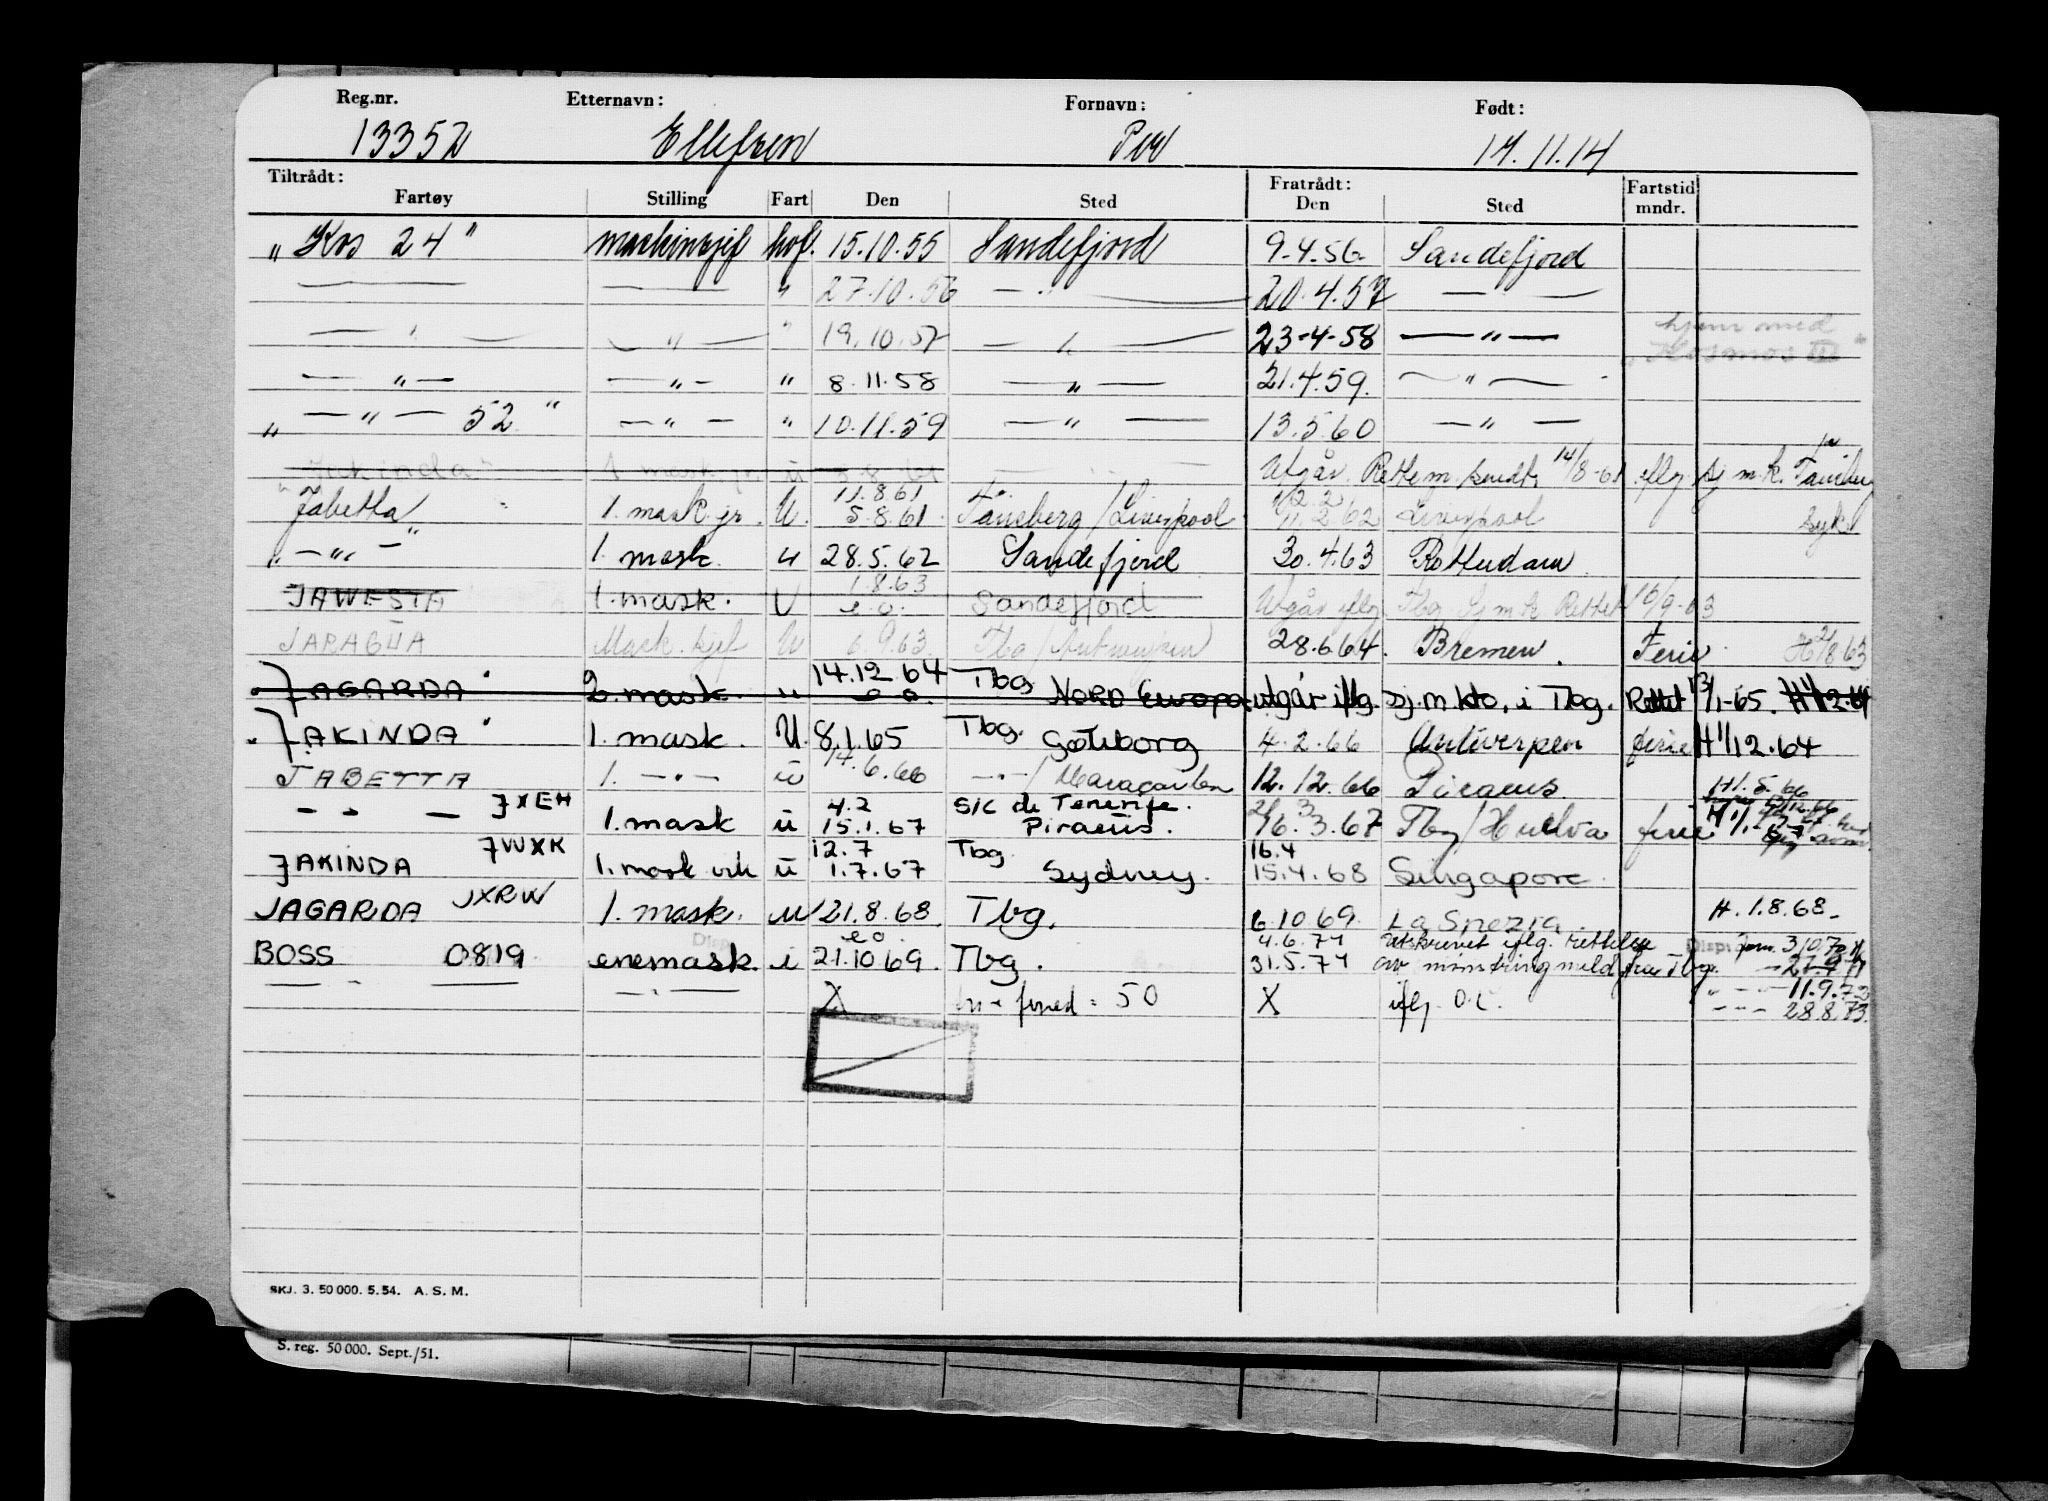 Reg.nr. Etternavn: Fornavn: Født:
13352 Ellefsen Per 14.11.14
Tiltrådt: Fratrådt: Fartstid
Fartøy Stilling Fart Den Sted Den Sted mndr.
„ Kos 24 " maskinsjef hvf. 15.10.55 Sandefjord 9.4.56 Sandefjord
— — " 27.10.56 — " — 20.4.57 — " —
— " — — " — " 19.10.57 — " — 23-4-58 — " — hjem med
„ Kosmos III "
— " — — " — " 8.11.58 — " — 21.4.59. — " —
„ — " — 52 " — " — " 10.11.59 — " — 13.5.60 — " —
Jakinda" 1 mask. jr. u 5.8.61 Utgår. Rettem. sendt 14/8-61 iflg sj m.k. i Tønsberg
" Jabetta " 1. mask jr. U. 11.8.61 5.8.61 Tønsberg / Liverpool 12.2 11.2.62 Liverpool syk
„ — " — " 1. mask. u 28.5.62 Sandefjord 30.4.63 Rotterdam
JAWESTA 1. mask. U 1.8.63 e.o. Sandefjord Utgår iflg Tbg Sj m k Rettet 16/9-63
JARAGUA Mask. sjef U 6.9.63 Tbg / Antwerpen 28.6.64. Bremen. Ferie H 2/8 63
" JAGARDA " 2. mask. u 14.12.64 e o. Tbg NORD Europa utgår iflg. sj.m.kto, i Tbg. Rettet 13/1-65.
" JAKINDA " 1. mask. U. 8.1.65 Tbg. Göteborg 4.2.66 Antwerpen ferie H 1/12.64
JABETTA 1. — " — u 14.6.66 — " — / Maracaibo 12.12.66 Piraeus H 1.5.66
— " — JXEH 1. mask u 4.2 15.1.67 S/C de Tenerife. Piraeus. 3.67 Tbg / Huelva ferie
JAKINDA JWXK 1. mask vik u 12.7 1.7.67 Tbg Sydney. 16.4 15.4.68 Singapore.
JAGARDA JXRW 1. mask. u 21.8.68 Tbg. 6.10 69. La Spezia H. 1.8.68
BOSS 0819 enemask. i e o. 21.10 69. Tbg. 4.6.74 31.5.74 Utskrevet iflg. rettelse av mønstringmeld fra Tbg. Disp: 3/0.70
— " — 11.9.72
— — — " — X = 50 X iflg. O.L. — " — 28.8.73.
SKJ. 3. 50 000. 5.54. A. S. M.
S. reg. 50 000. Sept./51.